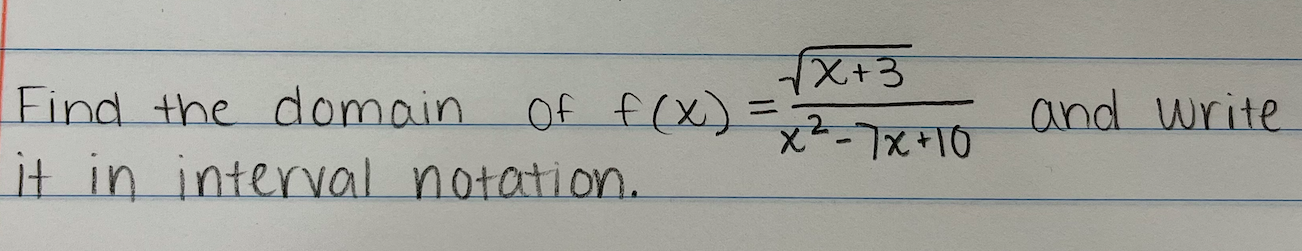 Find the domain of f(x) = √(x+3) / (x² - 7x + 10) and write
it in interval notation.